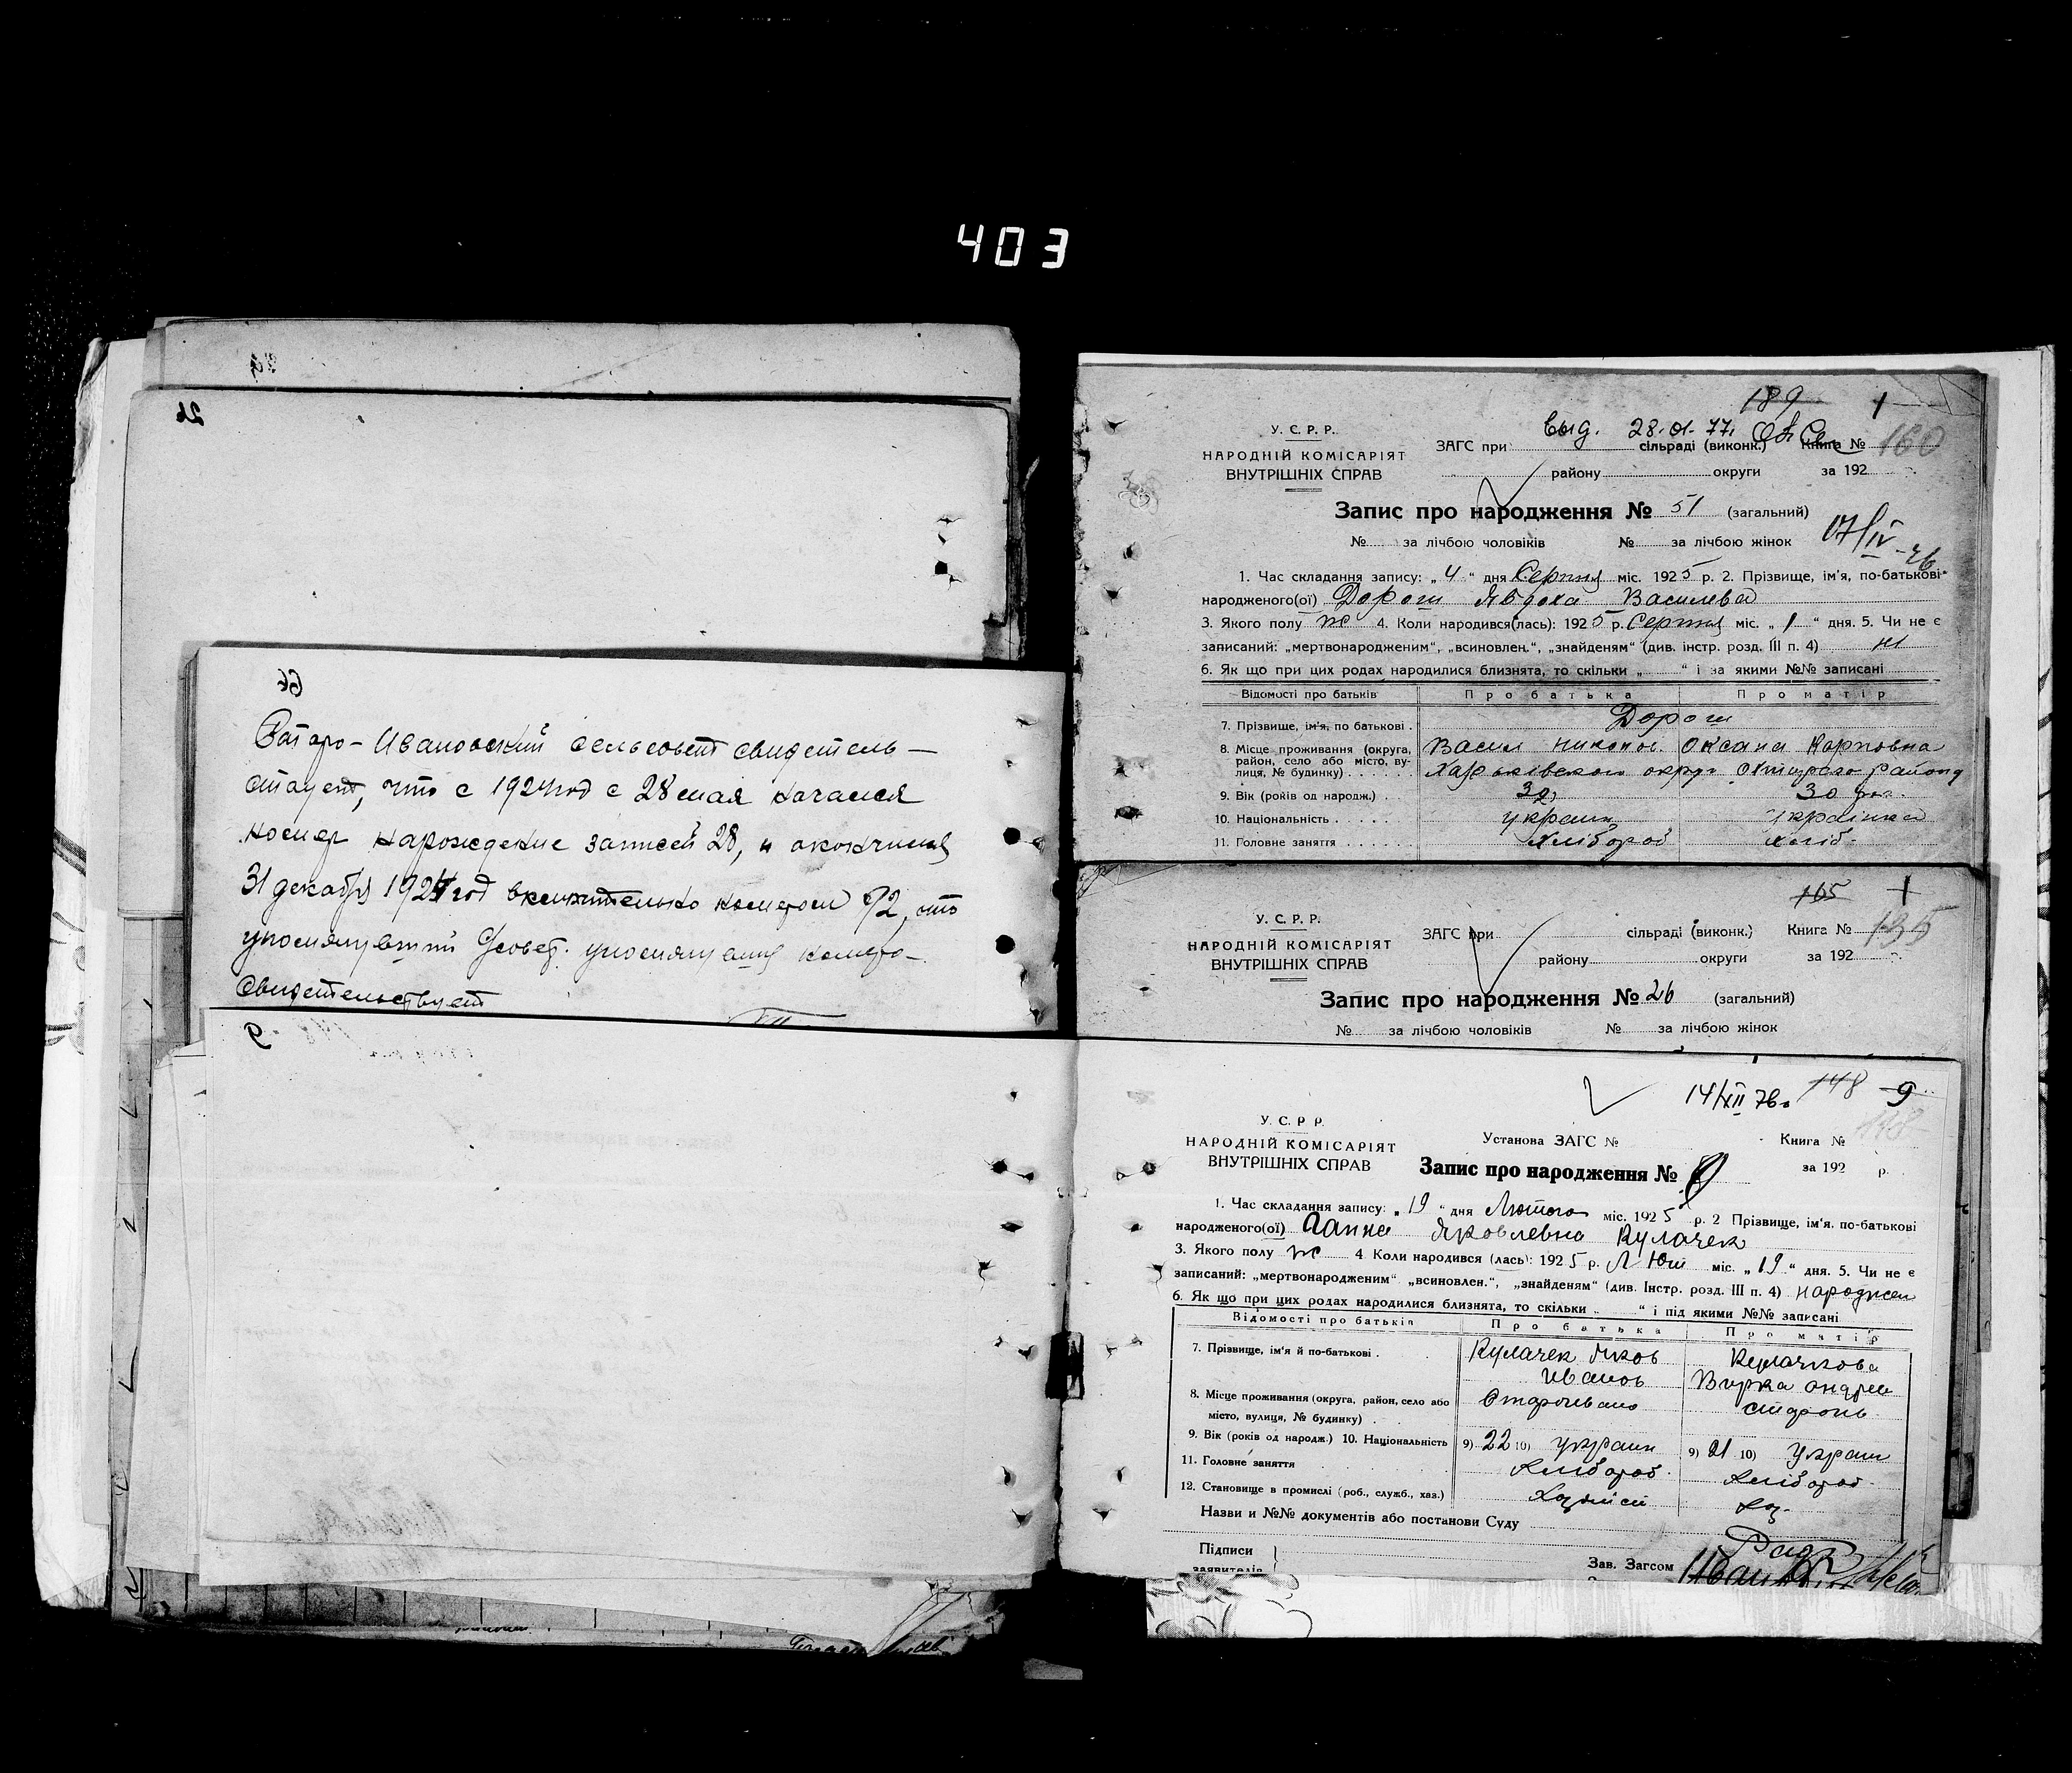 403
26
66
Старо-Ивановский сельсовет свидетель-
ствует, что с 1924 год с 28 мая начался
номер нарождение записей 28, и окончился
31 декабря 1924 год включительно номером 92, что
упомянутый сельсовет упомянутия номера
свидетельствует
9
189 1
выд. 28.01.77.
У. С. Р. Р.
НАРОДНІЙ КОМІСАРІЯТ
ВНУТРІШНІХ СПРАВ
ЗАГС при сільраді (виконк.) Книга № 160
району округи за 192
Запис про народження № 51 (загальний)
№ за лічбою чоловіків № за лічбою жінок
07/IV-76
1. Час складання запису: „4“ дня Серпня міс. 1925 р. 2. Прізвище, ім'я, по-батькові
народженого(ої) Дорош Явдоха Василева
3. Якого полу ж 4. Коли народився(лась): 1925 р. Серпня міс. „1“ дня. 5. Чи не є
записаний: „мертвонародженим“, „всиновлен.“, „знайденям“ (див. інстр. розд. III п. 4) ні
6. Як що при цих родах народилися близнята, то скільки „ “ і за якими №№ записані
Відомості про батьків Про батька Про матір
7. Прізвище, ім'я, по батькові . Дорош
8. Місце проживання (округа, район, село або місто, вулиця, № будинку) . . . . . . Васил Никонов. Оксана Карповна
Харьківского округ Охтирско району
9. Вік (років од народж.) . 32 30
10. Національність . . . . . украин украінка
11. Головне заняття . . . . . . Хлібороб хліб.
165 1
У. С. Р. Р.
НАРОДНІЙ КОМІСАРІЯТ
ВНУТРІШНІХ СПРАВ
ЗАГС при сільраді (виконк.) Книга № 135
району округи за 192
Запис про народження № 26 (загальний)
№ за лічбою чоловіків № за лічбою жінок
14/XII 76г 148 9
У. С. Р. Р.
НАРОДНІЙ КОМІСАРІЯТ
ВНУТРІШНІХ СПРАВ
Установа ЗАГС № Книга №
Запис про народження № за 192 р.
1. Час складання запису: „19“ дня Лютого міс. 1925 р. 2 Прізвище, ім'я. по-батькові
народженого(ої) Ганна Яковлевна Кулачек
3. Якого полу ж 4 Коли народився (лась): 1925 р. Лют міс. „19“ дня. 5. Чи не є
записаний: „мертвонародженим“ „всиновлен.“, „знайденям“ (див. Інстр. розд. III п. 4) народжен
6. Як що при цих родах народилися близнята, то скільки „ “ і під якими №№ записані
Відомості про батьків Про батька Про матір
7. Прізвище, ім'я й по-батькові . Кулачек Яков Кулачкова
Иванов Вирка Андрей
8. Місце проживання (округа, район, село або Староивано Староив.
місто, вулиця, № будинку) . .
9. Вік (років од народж.) 10. Національність 9) 22 10) украин 9) 21 10) украин
11. Головне заняття Хлібороб. Хлібороб.
12. Становище в промислі (роб., служб., хаз.) Хозяїн хоз.
Назви и №№ документів або постанови Суду
Підписи
заявителів
Зав. Загсом